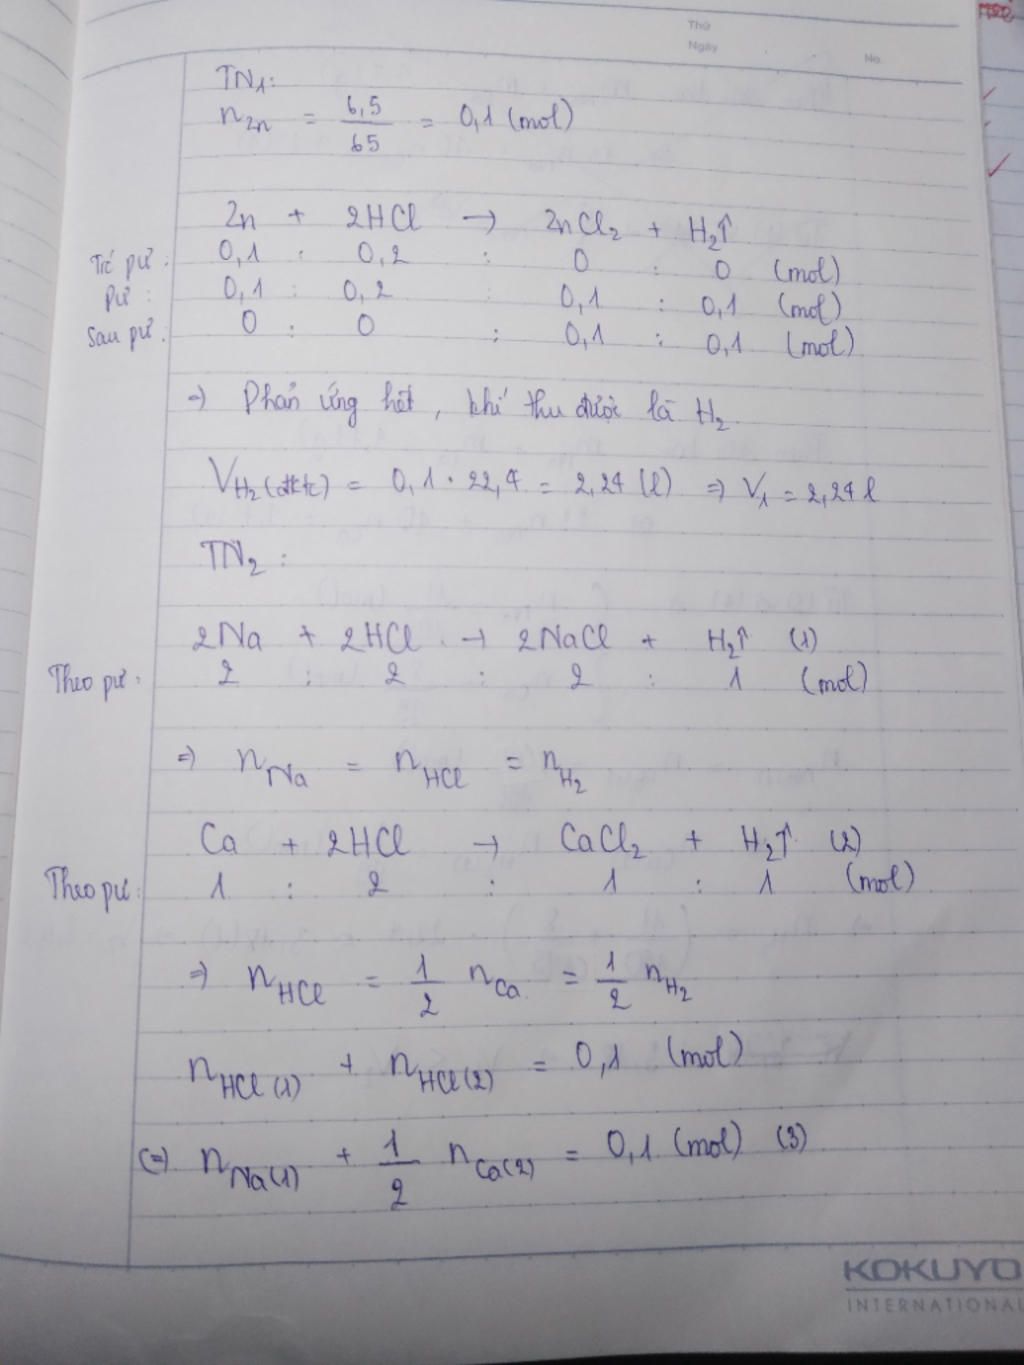 Thứ
Ngày
No.
TN₁:
n_Zn = 6,5/65 = 0,1 (mol)
Zn + 2HCl → ZnCl₂ + H₂↑
Trc pư: 0,1 : 0,2 : 0 : 0 (mol)
Pư: 0,1 : 0,2 : 0,1 : 0,1 (mol)
Sau pư: 0 : 0 : 0,1 : 0,1 (mol)
⇒ Phản ứng hết, khí thu được là H₂
V_H₂(đktc) = 0,1 . 22,4 = 2,24 (l) ⇒ V₁ = 2,24 l
TN₂:
2Na + 2HCl → 2NaCl + H₂↑ (1)
Theo pư: 2 : 2 : 2 : 1 (mol)
⇒ n_Na = n_HCl = n_H₂
Ca + 2HCl → CaCl₂ + H₂↑ (2)
Theo pư: 1 : 2 : 1 : 1 (mol)
⇒ n_HCl = 1/2 n_Ca = 1/2 n_H₂
n_HCl(1) + n_HCl(2) = 0,1 (mol)
(=) n_Na(1) + 1/2 n_Ca(2) = 0,1 (mol) (3)
KOKUYO
INTERNATIONAL